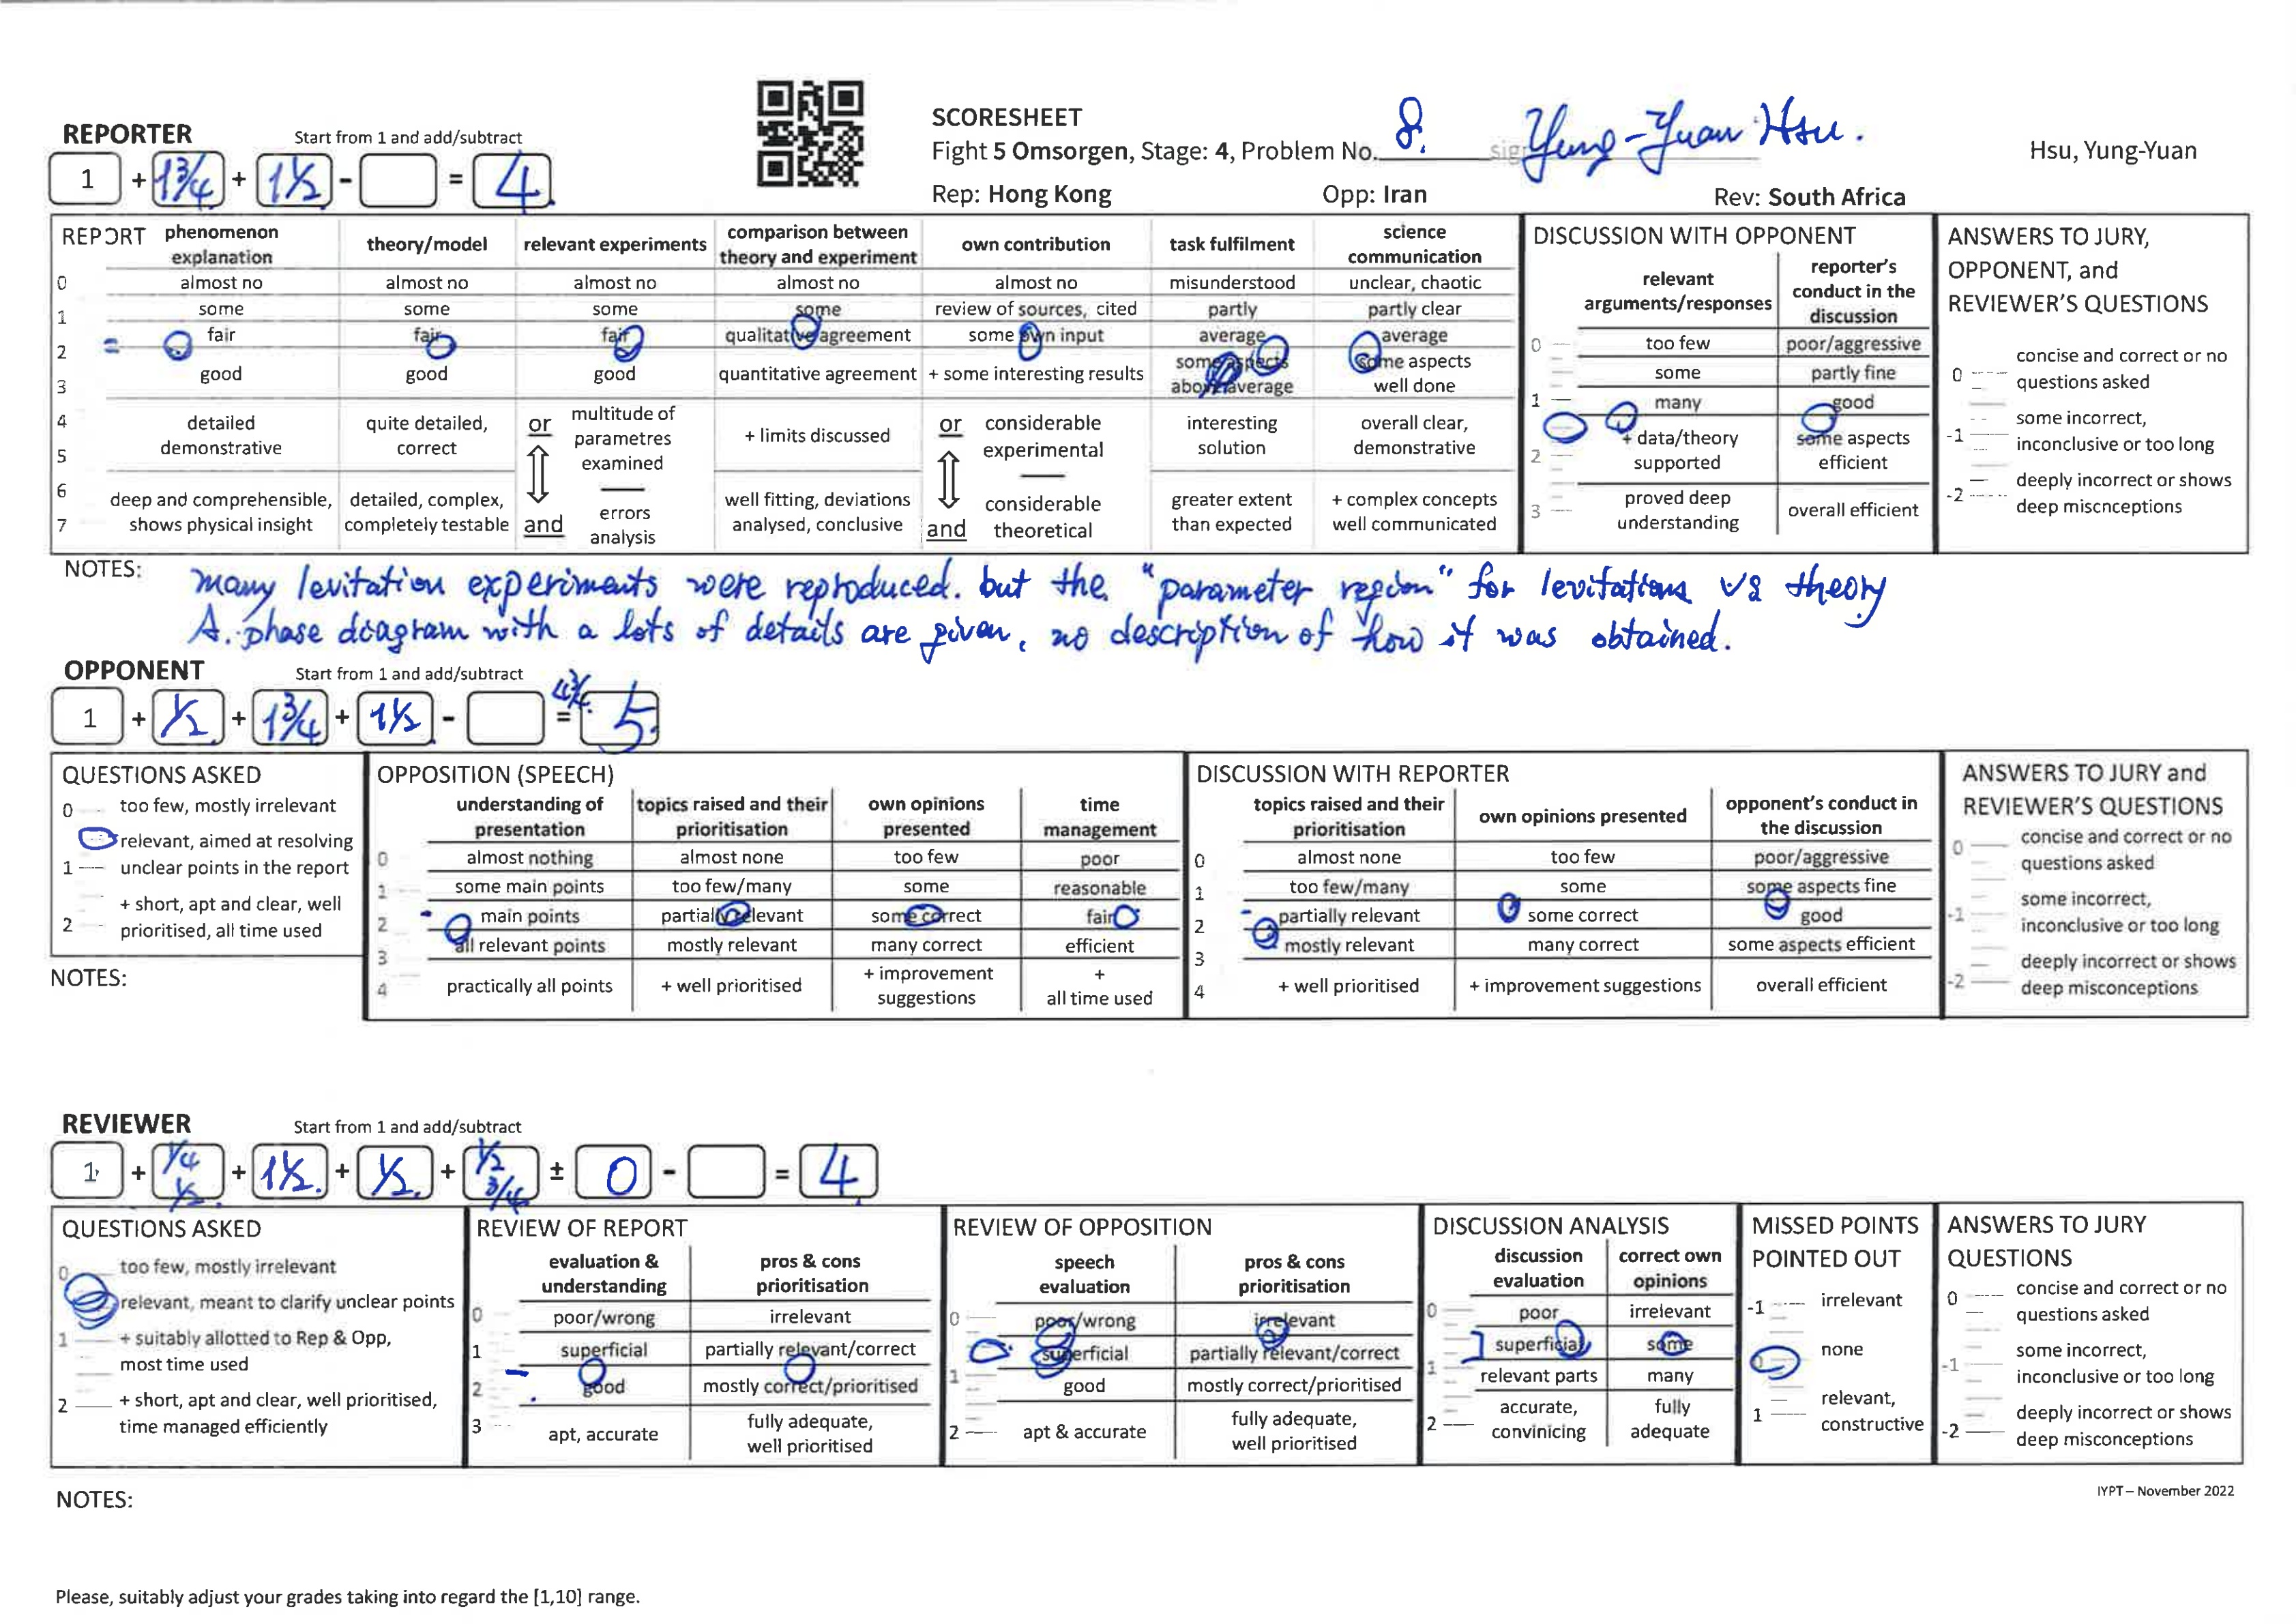 REPORTER Start from 1 and add/subtract
1 + 1 3/4 + 1 1/2 - = 4
SCORESHEET
Fight 5 Omsorgen, Stage: 4, Problem No. 8. Yung-Yuan Hsu. Hsu, Yung-Yuan
Rep: Hong Kong Opp: Iran Rev: South Africa
REPORT
phenomenon explanation
theory/model
relevant experiments
comparison between theory and experiment
own contribution
task fulfilment
science communication
0 almost no almost no almost no almost no almost no misunderstood unclear, chaotic
1 some some some some review of sources, cited partly partly clear
2 fair fair fair qualitative agreement some own input average average
3 good good good quantitative agreement + some interesting results some aspects above average some aspects well done
4 5 detailed demonstrative quite detailed, correct or multitude of parametres examined + limits discussed or considerable experimental interesting solution overall clear, demonstrative
6 7 deep and comprehensible, shows physical insight detailed, complex, completely testable and errors analysis well fitting, deviations analysed, conclusive and considerable theoretical greater extent than expected + complex concepts well communicated
DISCUSSION WITH OPPONENT
relevant arguments/responses reporter's conduct in the discussion
0 too few poor/aggressive
some partly fine
1 many good
2 + data/theory supported some aspects efficient
3 proved deep understanding overall efficient
ANSWERS TO JURY, OPPONENT, and REVIEWER'S QUESTIONS
0 concise and correct or no questions asked
-1 some incorrect, inconclusive or too long
-2 deeply incorrect or shows deep miscnceptions
NOTES: many levitation experiments were reproduced. but the "parameter region" for levitations vs theory
A. phase diagram with a lots of details are given, no description of how it was obtained.
OPPONENT Start from 1 and add/subtract
1 + 1/2 + 1 3/4 + 1 1/2 - = 4 3/4. 5.
QUESTIONS ASKED
0 too few, mostly irrelevant
relevant, aimed at resolving
1 unclear points in the report
+ short, apt and clear, well
2 prioritised, all time used
NOTES:
OPPOSITION (SPEECH)
understanding of presentation topics raised and their prioritisation own opinions presented time management
0 almost nothing almost none too few poor
1 some main points too few/many some reasonable
2 main points partially relevant some correct fair
3 all relevant points mostly relevant many correct efficient
4 practically all points + well prioritised + improvement suggestions + all time used
DISCUSSION WITH REPORTER
topics raised and their prioritisation own opinions presented opponent's conduct in the discussion
0 almost none too few poor/aggressive
1 too few/many some some aspects fine
2 partially relevant some correct good
3 mostly relevant many correct some aspects efficient
4 + well prioritised + improvement suggestions overall efficient
ANSWERS TO JURY and REVIEWER'S QUESTIONS
0 concise and correct or no questions asked
-1 some incorrect, inconclusive or too long
-2 deeply incorrect or shows deep misconceptions
REVIEWER Start from 1 and add/subtract
1 + 1/4 1/2 + 1 1/2. + 1/2. + 1/2 3/4 ± 0 - = 4
QUESTIONS ASKED
0 too few, mostly irrelevant
relevant, meant to clarify unclear points
1 + suitably allotted to Rep & Opp,
most time used
2 + short, apt and clear, well prioritised,
time managed efficiently
REVIEW OF REPORT
evaluation & understanding pros & cons prioritisation
0 poor/wrong irrelevant
1 superficial partially relevant/correct
2 good mostly correct/prioritised
3 apt, accurate fully adequate, well prioritised
REVIEW OF OPPOSITION
speech evaluation pros & cons prioritisation
0 poor/wrong irrelevant
superficial partially relevant/correct
1 good mostly correct/prioritised
2 apt & accurate fully adequate, well prioritised
DISCUSSION ANALYSIS
discussion evaluation correct own opinions
0 poor irrelevant
superficial some
1 relevant parts many
2 accurate, convinicing fully adequate
MISSED POINTS POINTED OUT
-1 irrelevant
0 none
1 relevant, constructive
ANSWERS TO JURY QUESTIONS
0 concise and correct or no questions asked
-1 some incorrect, inconclusive or too long
-2 deeply incorrect or shows deep misconceptions
NOTES:
IYPT – November 2022
Please, suitably adjust your grades taking into regard the [1,10] range.